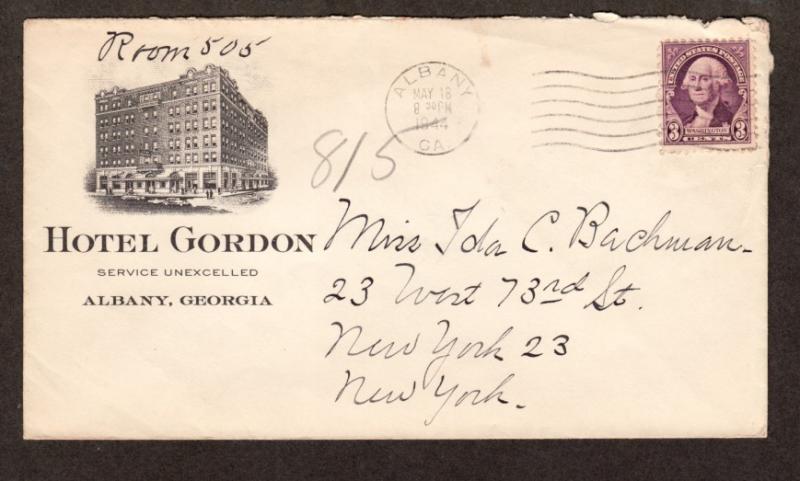 Room 505
ALBANY
MAY 18
8 30 PM
1944
GA.
UNITED STATES POSTAGE
3 WASHINGTON 3
CENTS
815
HOTEL GORDON
SERVICE UNEXCELLED
ALBANY, GEORGIA
Miss Ida C. Bachman
23 West 73rd St.
New York 23
New York.